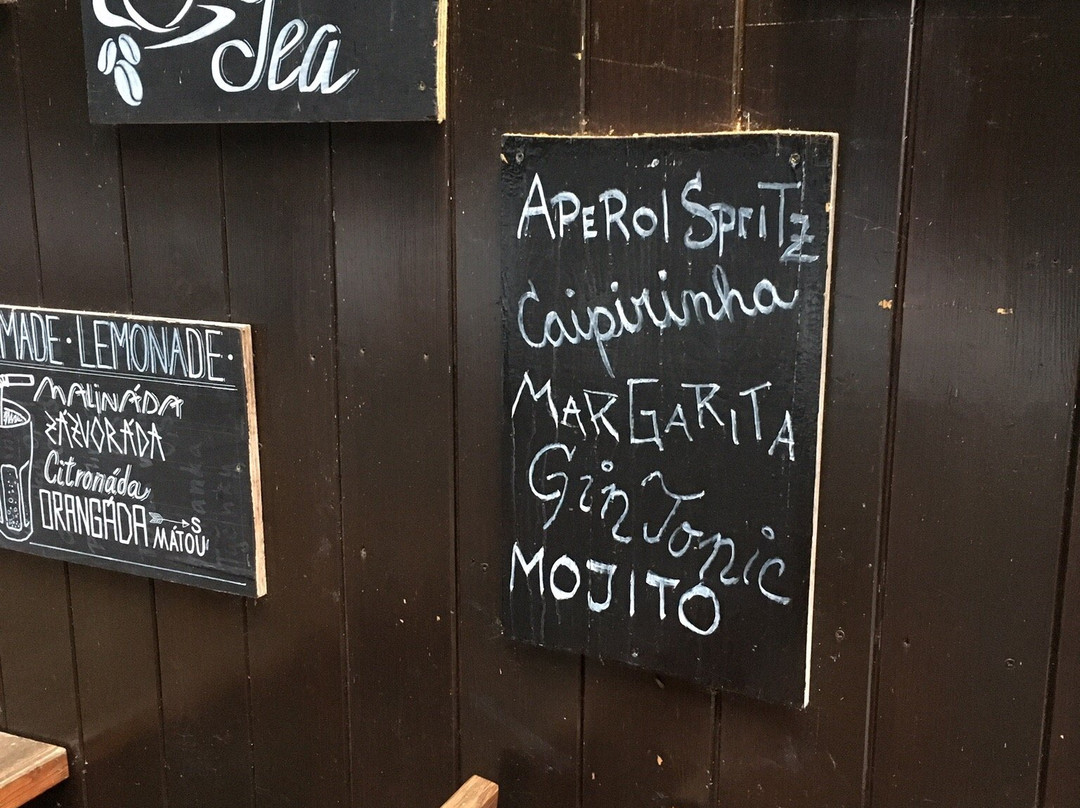 Tea
MADE · LEMONADE ·
MALINÁDA
ZÁZVORÁDA
Citronáda
ORANGÁDA
S
MÁTOU
APEROl SpriTz
Caipirinha
MARGARITA
Gin Tonic
MOJITO